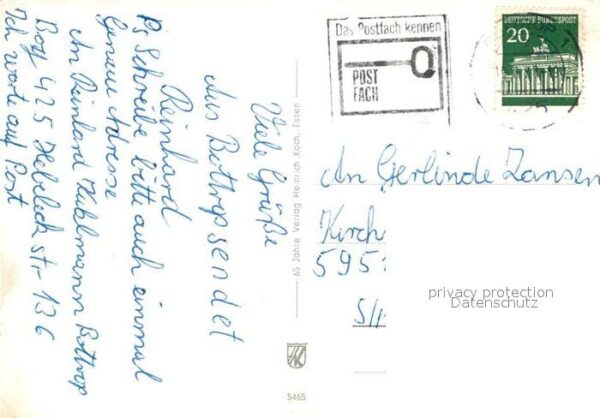 Viele Grüße
Aus Bottrop sendet
Reinhard
Ps Schreibe bitte auch einmal
Genaue Adresse
An Reinhard Kuhlmann Bottrop
Boy 425 Hebeleck str 136
Ich warte auf Post
65 Jahre Verlag Heinrich Koch, Essen
5465
Das Postfach kennen
POST
FACH
DEUTSCHE BUNDESPOST
20
An Gerlinde Jansen
Kirch
595
privacy protection
Datenschutz